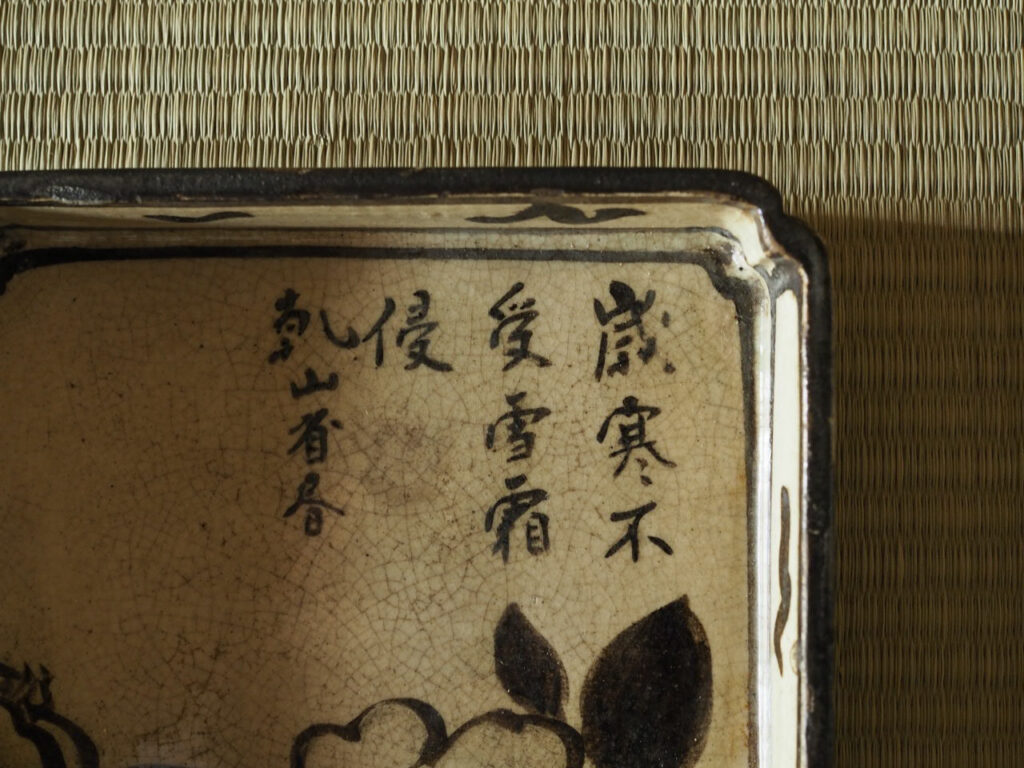 歳寒不
受雪霜
侵
乾山省書